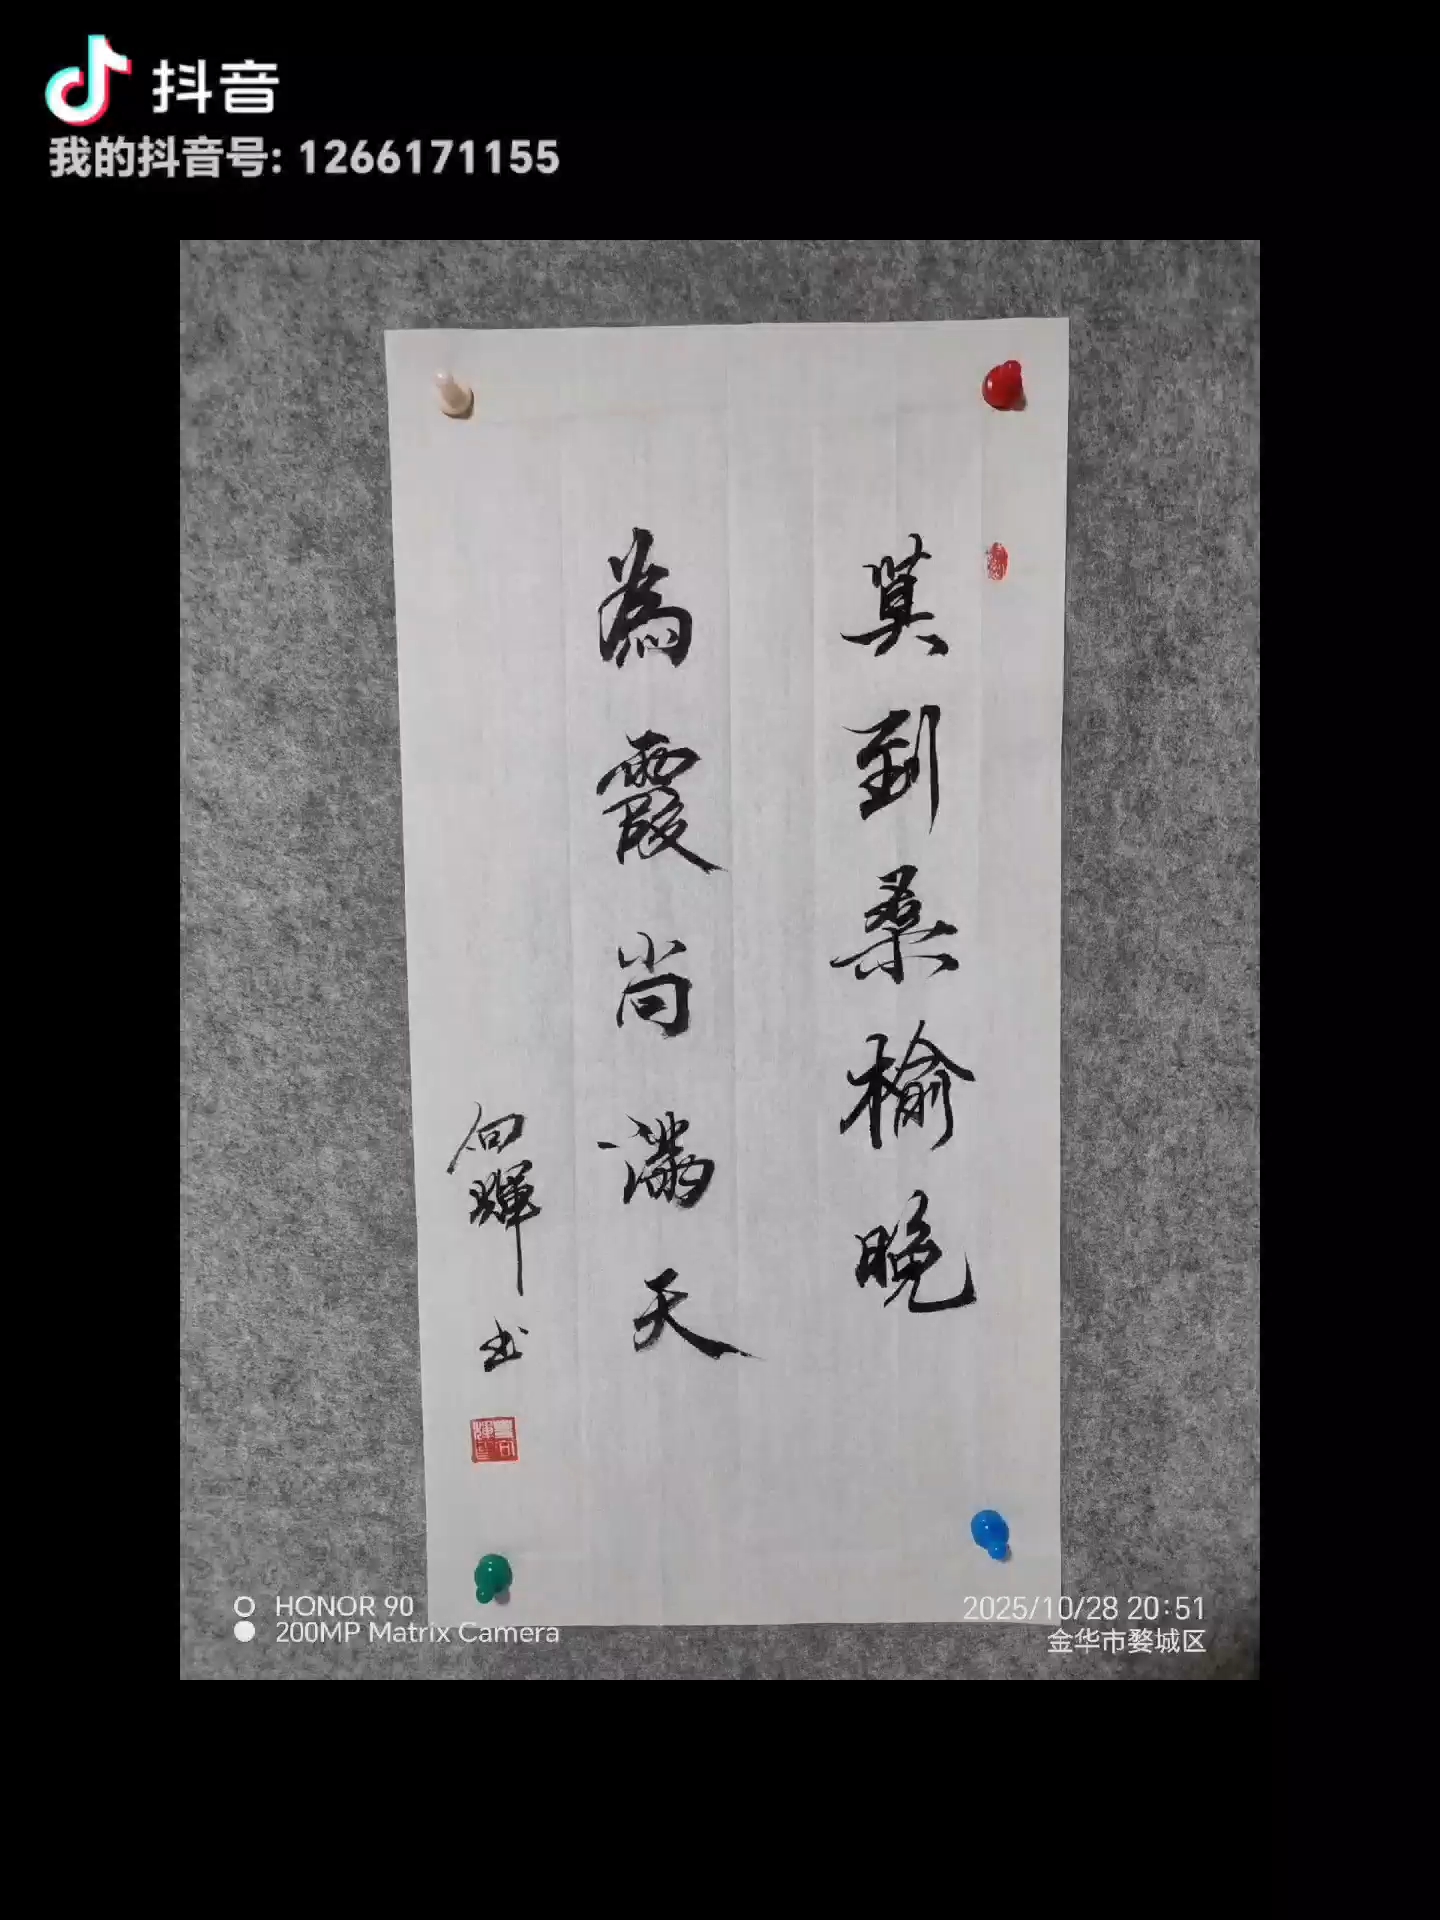 抖音
我的抖音号: 1266171155
莫到桑榆晚
為霞尚满天
向輝书
HONOR 90
200MP Matrix Camera
2025/10/28 20:51
金华市婺城区